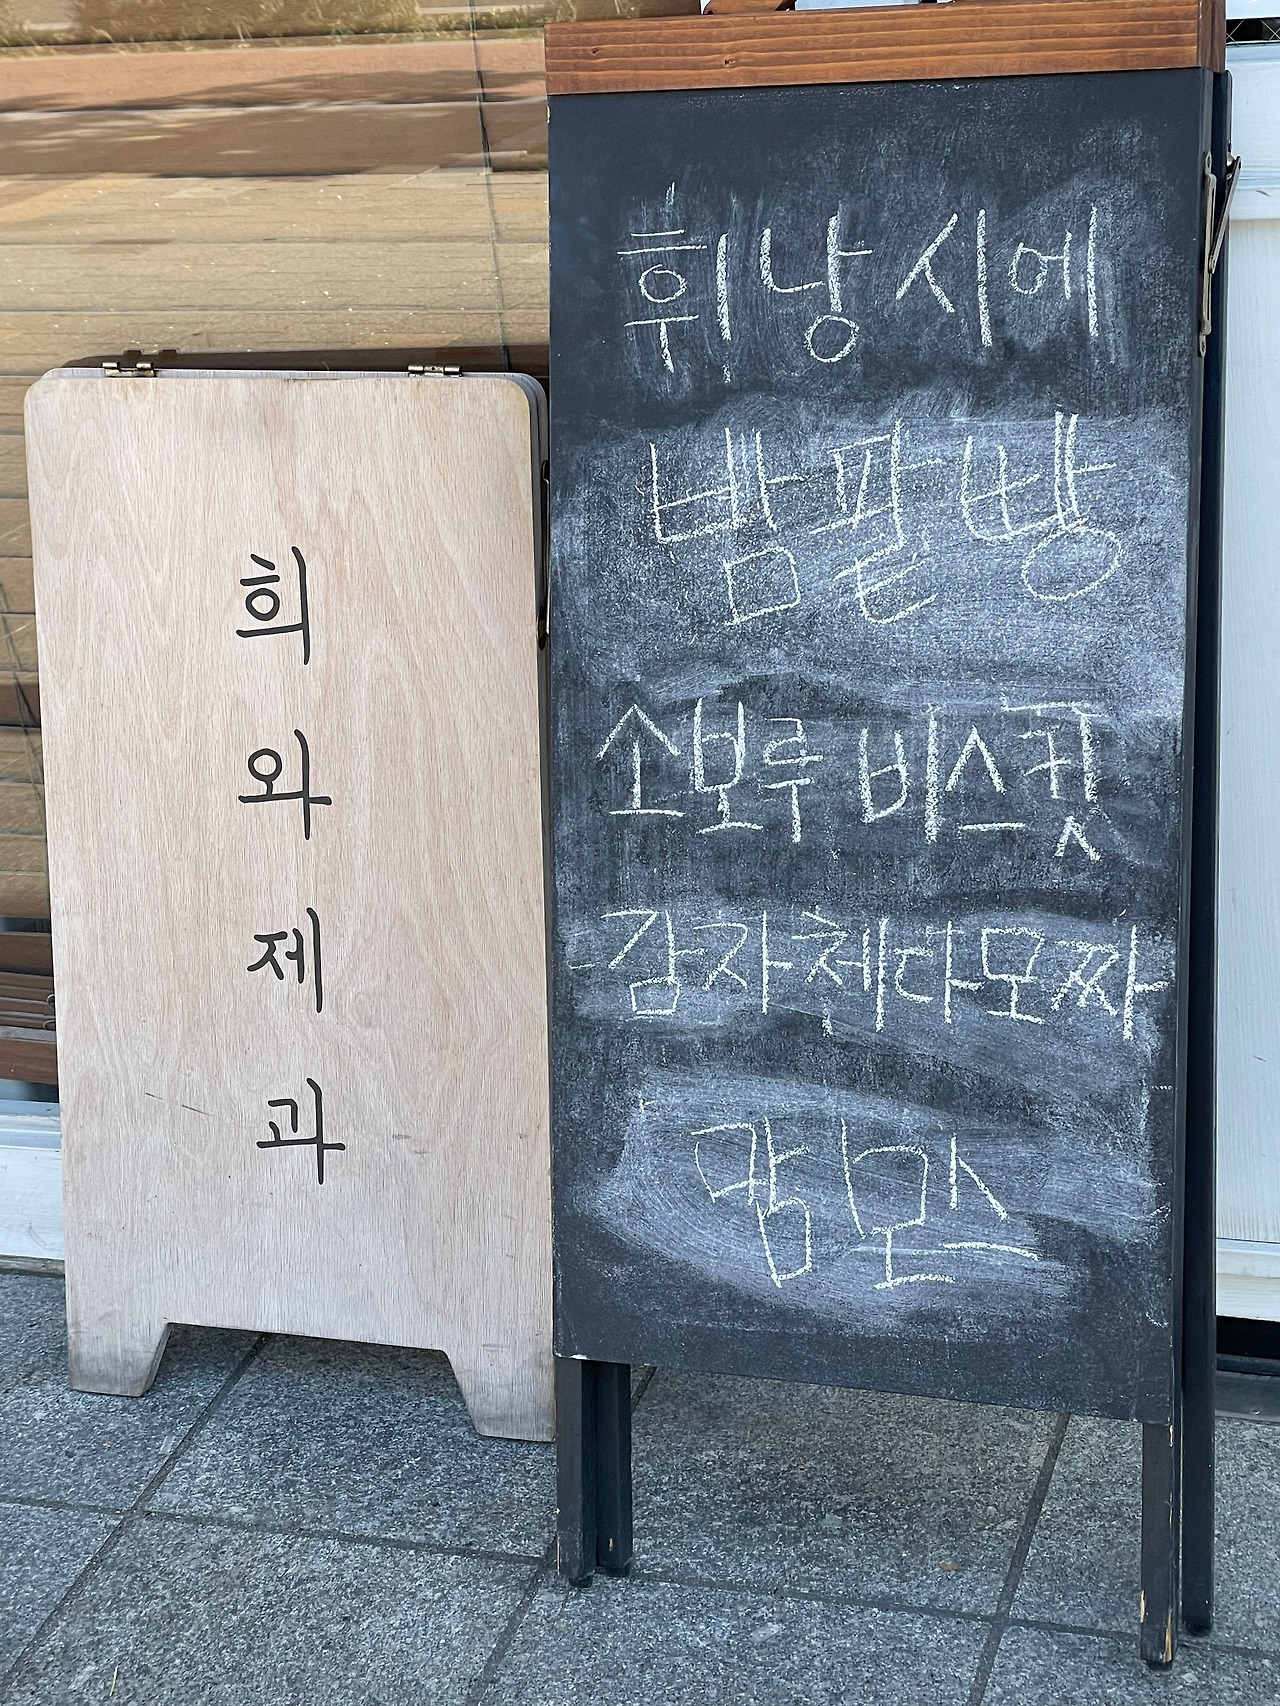 희와제과
휘낭시에
밤팥빵
소보루 비스킷
감자체다모짜
깜빠뉴